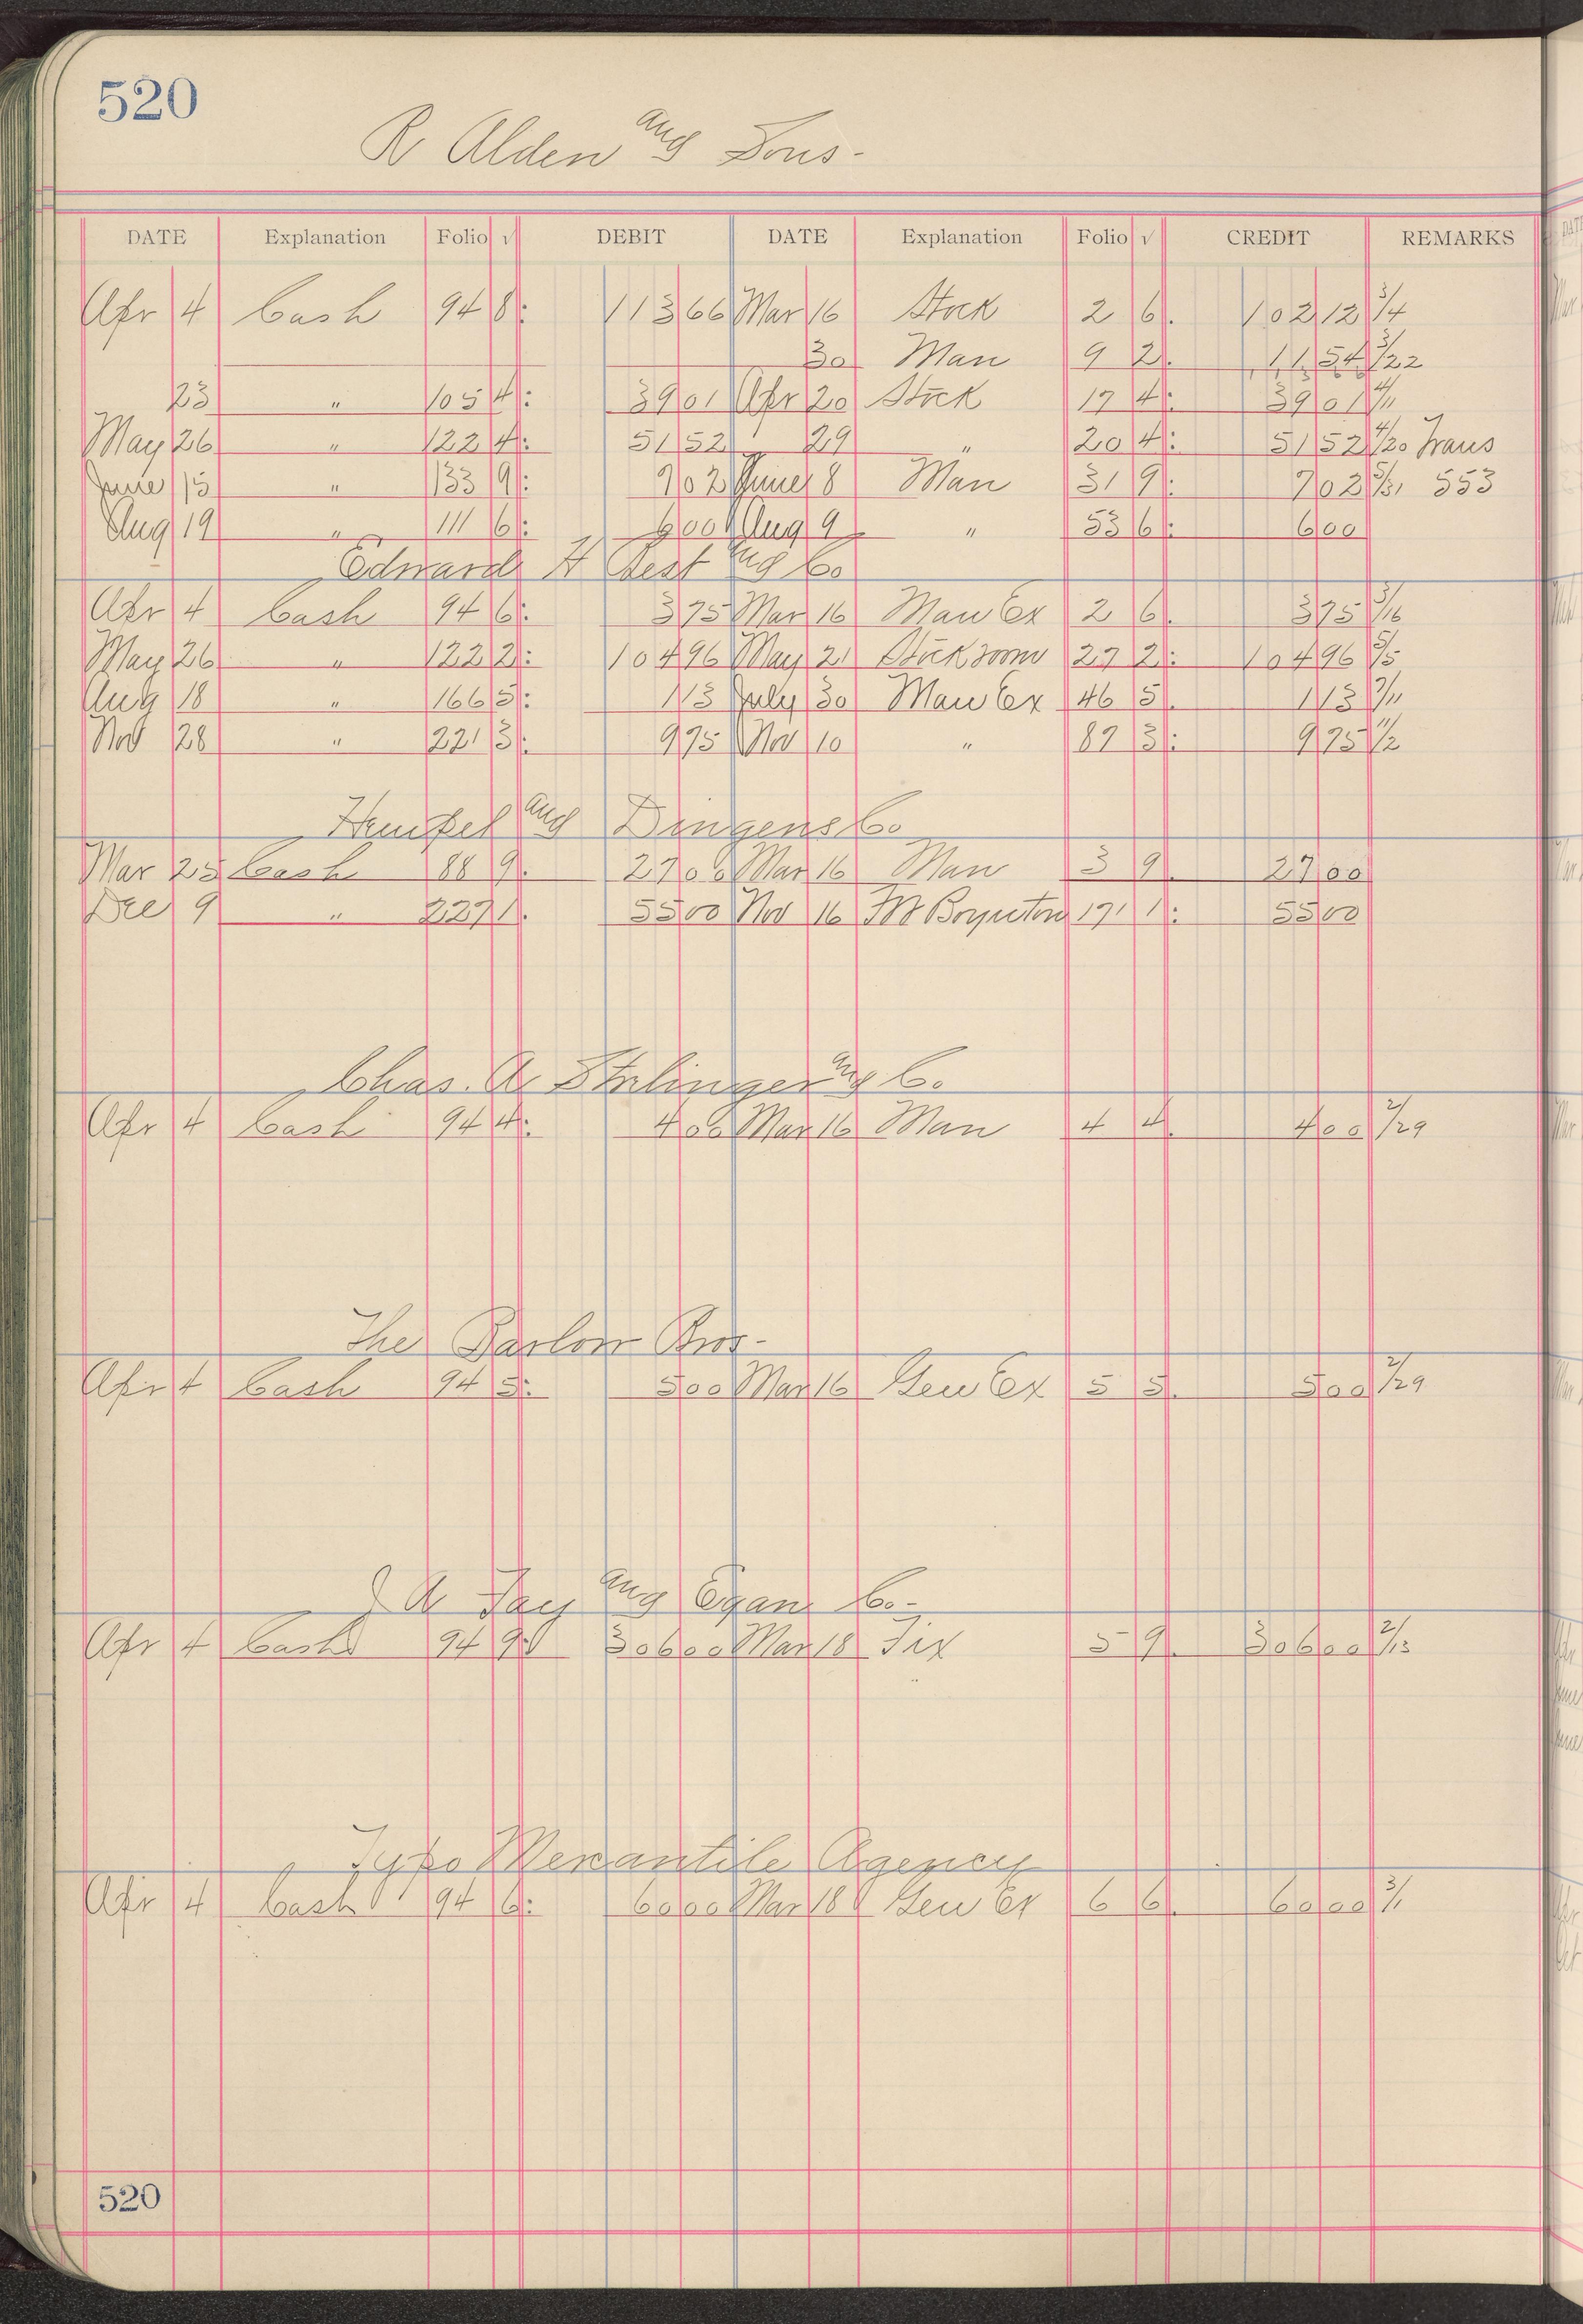 520
R Alden and Sons-
DATE Explanation Folio √ DEBIT DATE Explanation Folio √ CREDIT REMARKS
Apr 4 Cash 94 8: 113 66 Mar 16 Stock 2 6. 102 12 3/4
30 Man 9 2. 11 54 3/22
23 " 105 4: 39 01 Apr 20 Stock 17 4: 39 01 4/11
May 26 " 122 4: 51 52 29 " 20 4: 51 52 4/20 Trans
June 15 " 133 9: 7 02 June 8 Man 31 9: 7 02 5/31 553
Aug 19 " 111 6: 6 00 Aug 9 " 53 6: 6 00
Edward H Best and Co
Apr 4 Cash 94 6: 3 75 Mar 16 Man Ex 2 6. 3 75 3/16
May 26 " 122 2: 104 96 May 21 Stockroom 27 2: 104 96 5/5
Aug 18 " 166 5: 1 13 July 30 Man Ex 46 5. 1 13 7/11
Nov 28 " 221 3: 9 75 Nov 10 " 87 3: 9 75 11/2
and Dingens Co.
Mar 25 Cash 88 9. 27 00 Mar 16 Man 3 9. 27 00
Dec 9 " 227 1. 55 00 Nov 16 Boynton 171 1: 55 00
Chas. A Strelinger and Co.
Apr 4 Cash 94 4: 4 00 Mar 16 Man 4 4. 4 00 2/29
The Barlow Bros-
Apr 4 Cash 94 5: 5 00 Mar 16 Gen Ex 5 5. 5 00 2/29
J A Fay and Egan Co.-
Apr 4 Cash 94 9: 306 00 Mar 18 Fix 5 9. 306 00 2/13
Typo Mercantile Agency
Apr 4 Cash 94 6: 60 00 Mar 18 Gen Ex 6 6. 60 00 3/1
520